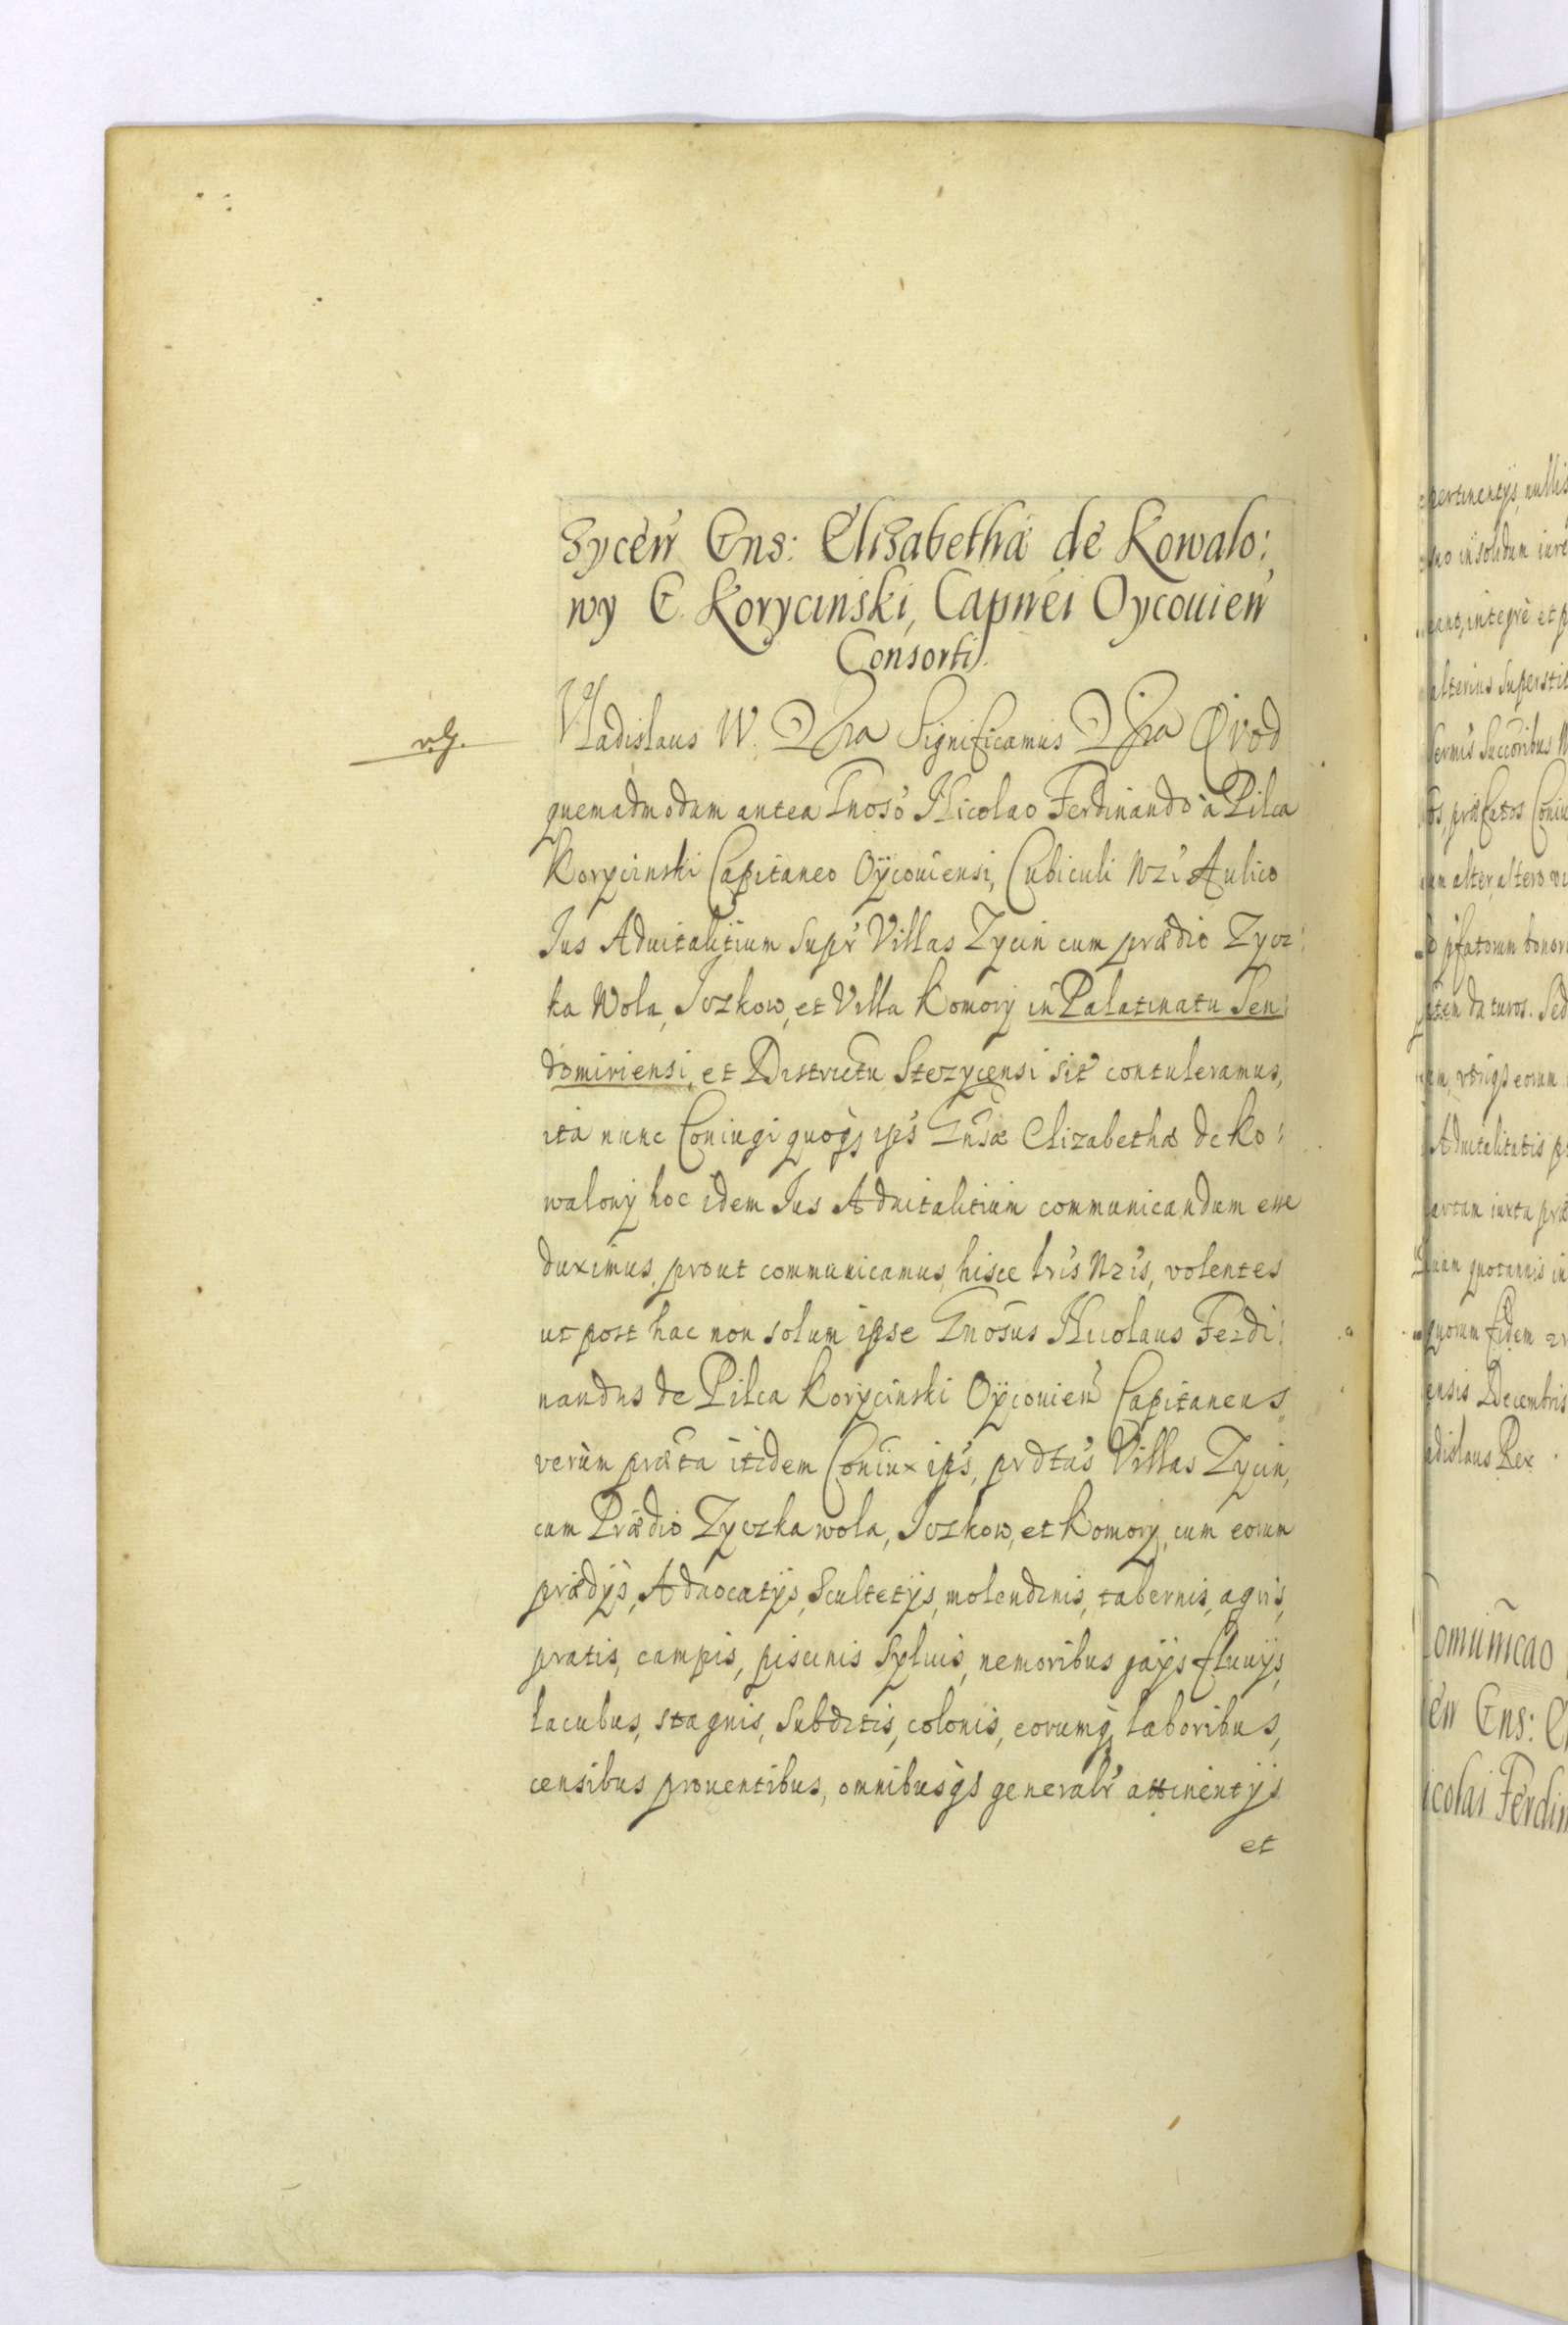 zyceń Gns: Elisabetha de Kowalo:
wy G. Korycinski, Capnei Oycouień
Consorti.
Vladislaus IV. Significamus Qvod
quemadmodum antea Gnoso Nicolao Ferdinando à Pilca
Korycinski Capitaneo Oÿcouiensi, Cubiculi Nri Aulico
Ius Aduitalitium supr Villas Zycin cum prædio Zycz:
ka Wola, Iczkow, et Villa Komory in Palatinatu Sen:
domiriensi, et Districtu Stezycensi sit contuleramus,
ita nunc Coniugi quoqз ips Gnsæ Elizabethæ de Ko:
walowy hoc idem Ius Aduitalitium communicandum esse
duximus, prout communicamus, hisce lris Nris, volentes
ut post hac non solum ipse Gnosus Nicolaus Ferdi:
nandus de Pilca Korycinski Oÿcouień Capitaneus
verùm præfta itidem Coniux ips, prdtas Villas Zycin,
cum Prædio Zyczka wola, Iczkow, et Komory, cum eorum
prædijs, Aduocatijs, Scultetijs, molendinis, tabernis, agris,
pratis, campis, piscinis Syluis, nemoribus gays fluuijs,
lacubus, stagnis, Subditis, colonis, eorumq laboribus,
censibus prouentibus, omnibusqз generalr attinentijs
et
pertinentijs, nullis
in solidum iure
integrè et p
alterius superstit
Succoribus N
præfatos Coniu
alter, altero
pfatorum bonor
daturos. Sed
eorum
Aduitalitatis p
iuxta præ
quotannis in
quorum fidem
Decembris
Rex.
Comunicao
Gns: E
Ferdin